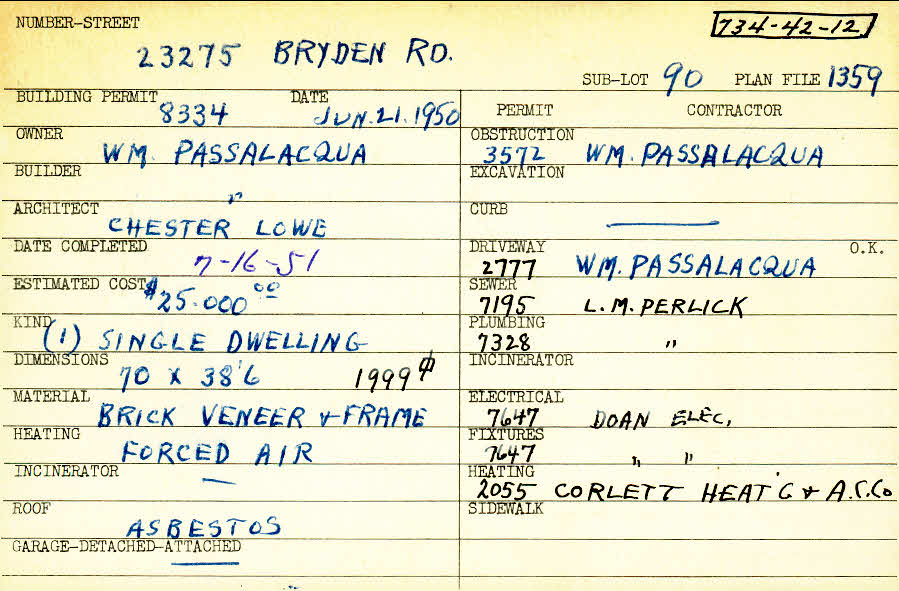 NUMBER-STREET
734-42-12
23275 BRYDEN RD.
SUB-LOT 90 PLAN FILE 1359
BUILDING PERMIT DATE
8334 JUN. 21. 1950
PERMIT CONTRACTOR
OWNER
WM. PASSALACQUA
OBSTRUCTION
3572 WM. PASSALACQUA
BUILDER
"
EXCAVATION
ARCHITECT
CHESTER LOWE
CURB
DATE COMPLETED
7-16-51
DRIVEWAY O.K.
2777 WM. PASSALACQUA
ESTIMATED COST
$25.000 00
SEWER
7195 L.M. PERLICK
KIND
(1) SINGLE DWELLING
PLUMBING
7328 "
DIMENSIONS
70 X 38'6 1999
INCINERATOR
MATERIAL
BRICK VENEER & FRAME
ELECTRICAL
7647 DOAN ELEC,
HEATING
FORCED AIR
FIXTURES
7647 " "
INCINERATOR
—
HEATING
2055 CORLETT HEAT'G & A.C.Co
ROOF
ASBESTOS
SIDEWALK
GARAGE-DETACHED-ATTACHED